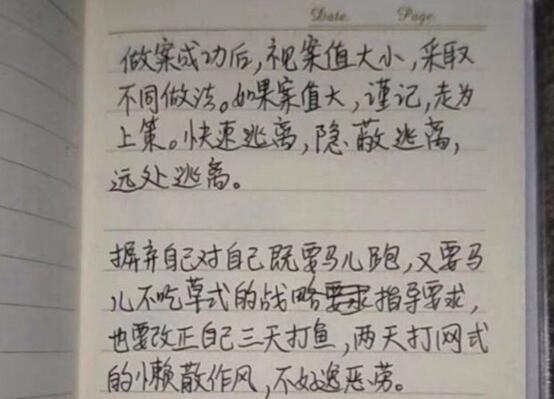 Date. Page.
做案成功后,视案值大小,采取
不同做法。如果案值大,谨记,走为
上策。快速逃离,隐蔽逃离,
远处逃离。
摒弃自己对自己既要马儿跑,又要马
儿不吃草式的战略指导要求,
也要改正自己三天打鱼,两天打网式
的懒散作风,不好逸恶劳。